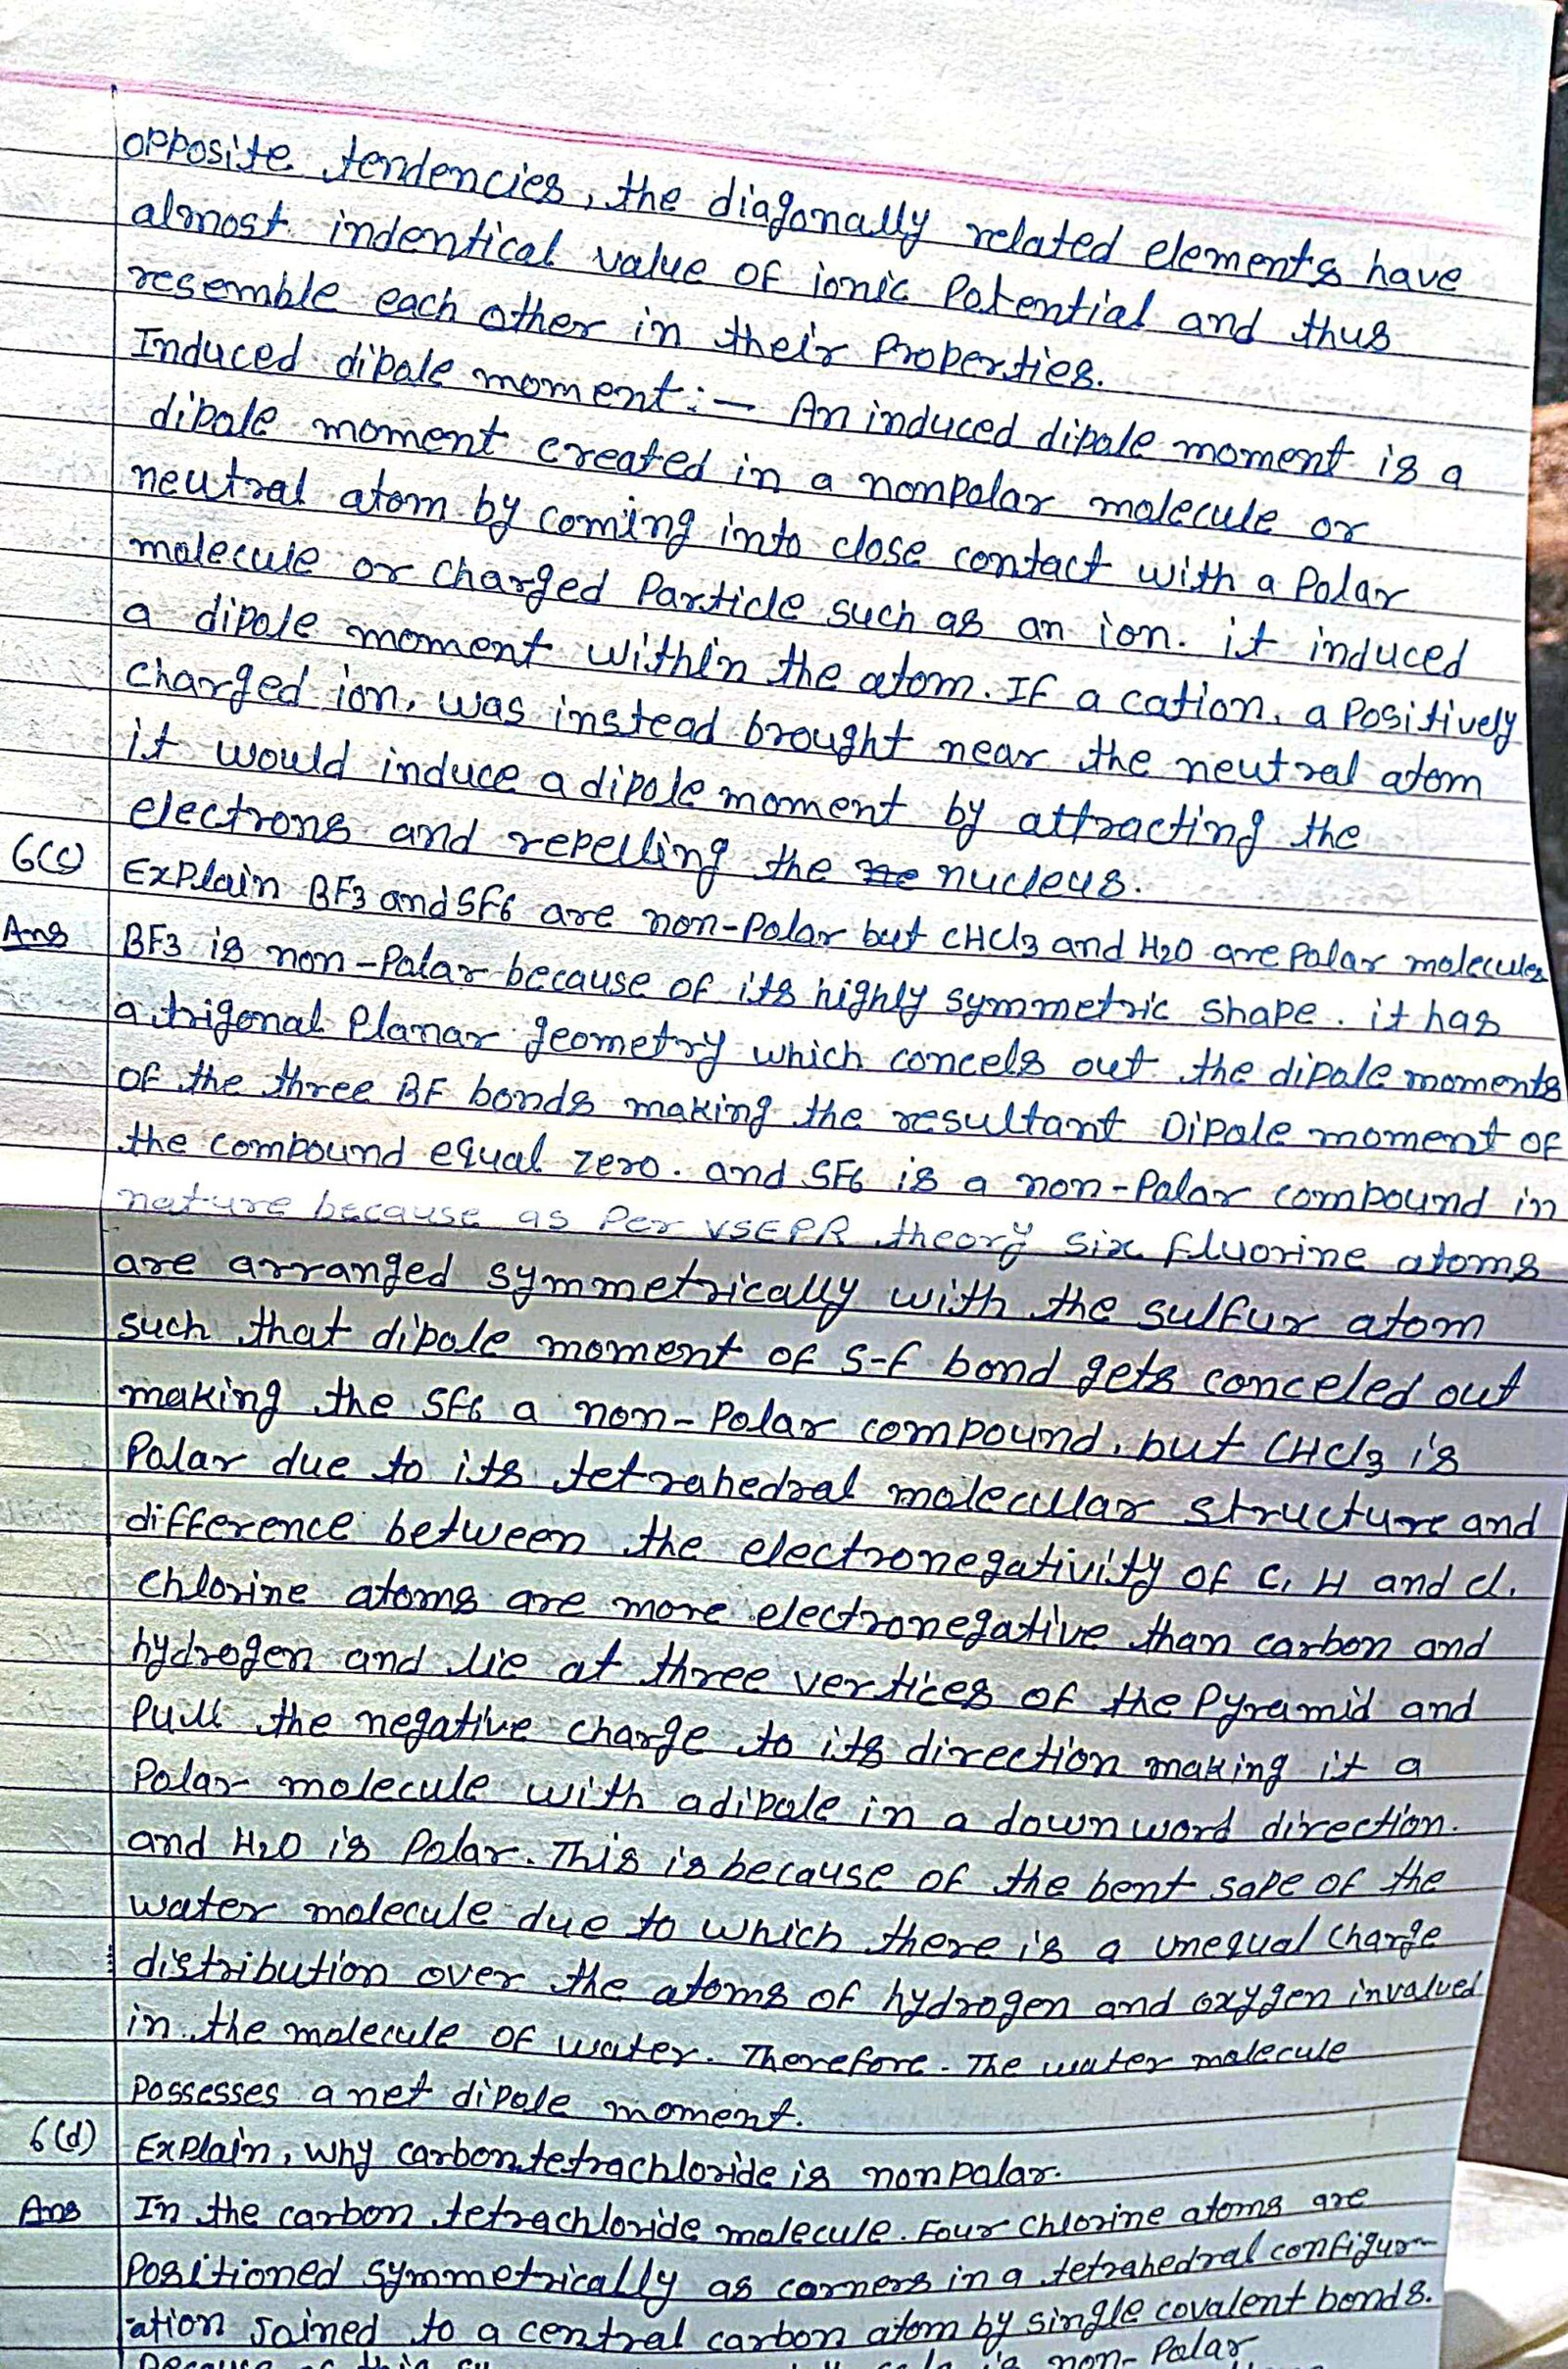 opposite tendencies, the diagonally related elements have
almost indentical value of ionic Potential and thus
resemble each other in their Properties.
Induced dipole moment:- An induced dipole moment is a
dipole moment created in a nonpolar molecule or
neutral atom by coming into close contact with a Polar
molecule or charged Particle such as an ion. it induced
a dipole moment within the atom. If a cation, a Positively
charged ion, was instead brought near the neutral atom
it would induce a dipole moment by attracting the
electrons and repelling the ne nucleus.
6(c) Explain BF3 and SF6 are non-polar but CHCl3 and H2O are polar molecules
Ans BF3 is non-Polar because of its highly symmetric shape. it has
a trigonal Planar geometry which concels out the dipole moments
of the three BF bonds making the resultant Dipole moment of
the compound equal zero. and SF6 is a non-Polar compound in
nature because as Per VSEPR theory six fluorine atoms
are arranged symmetrically with the sulfur atom
such that dipole moment of S-F bond gets conceled out
making the SF6 a non-Polar compound, but CHCl3 is
Polar due to its tetrahedral molecular structure and
difference between the electronegativity of C, H and cl.
Chlorine atoms are more electronegative than carbon and
hydrogen and lie at three vertices of the Pyramid and
Pull the negative charge to its direction making it a
Polar molecule with a dipole in a down word direction.
and H2O is Polar. This is because of the bent sape of the
water molecule due to which there is a unequal charge
distribution over the atoms of hydrogen and oxygen invalued
in the molecule of water. Therefore. The water molecule
Possesses a net dipole moment.
6(d) Explain, why carbon tetrachloride is non polar.
Ans In the carbon tetrachloride molecule. Four chlorine atoms are
Positioned symmetrically as corners in a tetrahedral configur-
ation joined to a central carbon atom by single covalent bonds.
Because of this is non-Polar